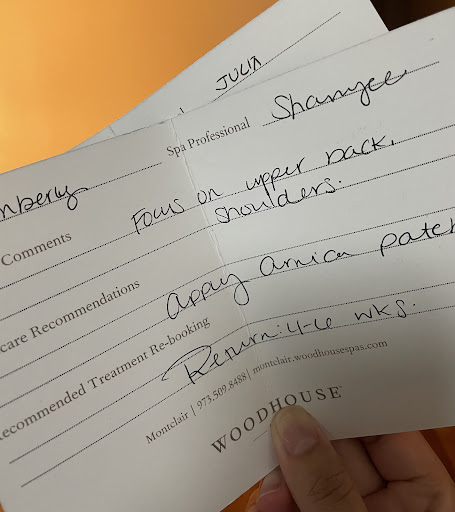 JULIA
Spa Professional Shamyee
nberly
Comments Focus on upper back,
shoulders.
care Recommendations apply arnica patch
ecommended Treatment Re-booking
Return: 4-6 wks.
Montclair | 973.509.8488 | montclair.woodhousespas.com
WOODHOUSE